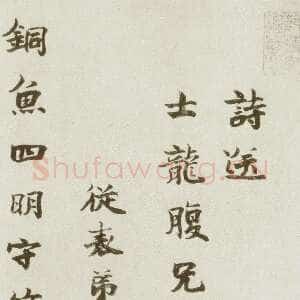 詩送
士龍腹兄
從表弟
銅魚四明守
Shufawang.CN